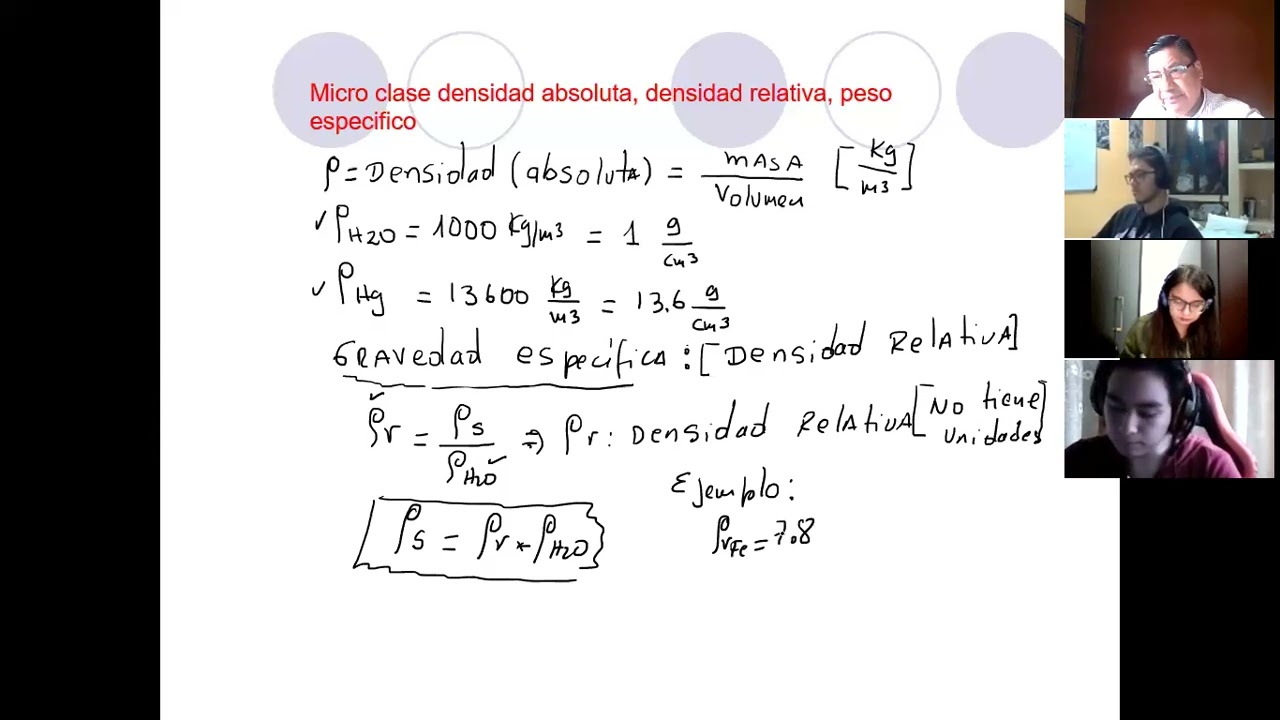 Micro clase densidad absoluta, densidad relativa, peso
especifico
ρ = Densidad (absoluta) = masa / Volumen [Kg/m3]
✓ ρH2O = 1000 Kg/m3 = 1 g/cm3
✓ ρHg = 13600 Kg/m3 = 13.6 g/cm3
GRAVEDAD específica: [Densidad Relativa]
ρr = ρs / ρH2O ⇒ ρr: Densidad Relativa [No tiene unidades]
Ejemplo:
ρs = ρr * ρH2O
ρrFe = 7.8